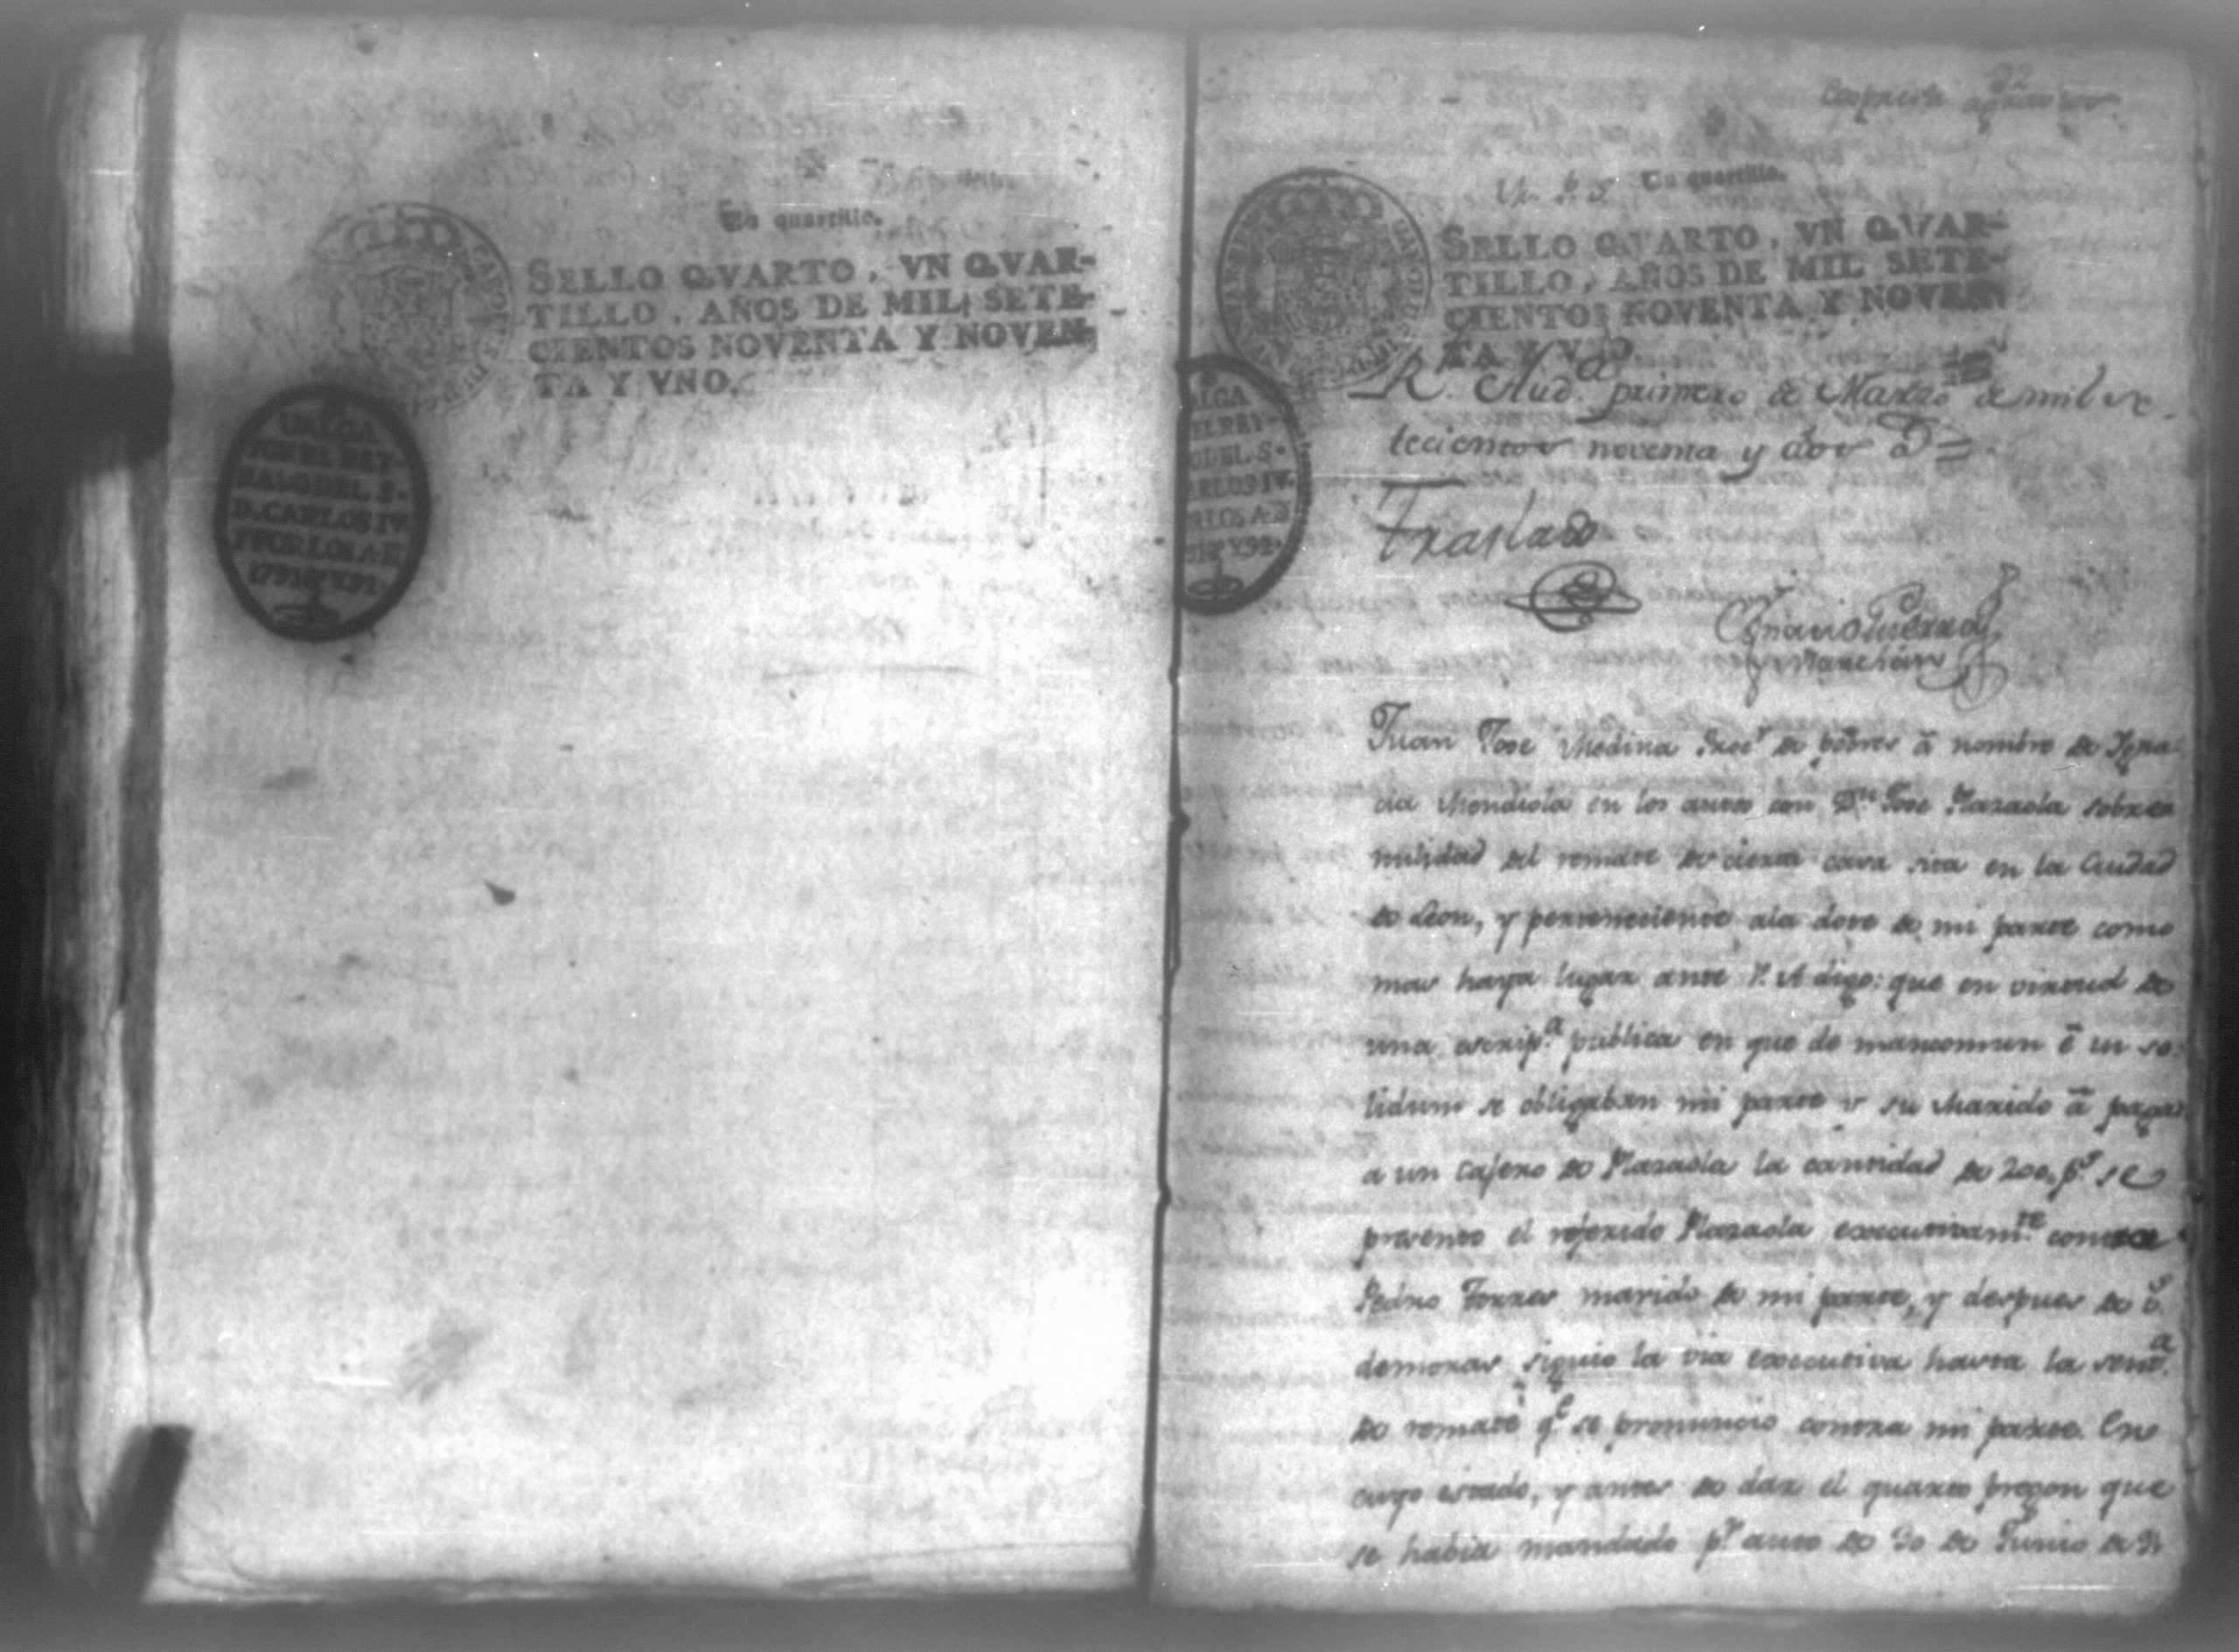 Un quartillo.
SELLO QVARTO, VN QVAR-
TILLO, AÑOS DE MIL SETE-
CIENTOS NOVENTA Y NOVEN-
TA Y VNO.
VALGA
POR EL REY-
NADO DEL S.
D. CARLOS IV.
Y POR LOS A. D
1791 Y 92.
32
Expresa agravios.
M. P. S. Un quartillo.
SELLO QVARTO, VN QVAR-
TILLO, AÑOS DE MIL SETE-
CIENTOS NOVENTA Y NOVEN-
TA Y VNO.
ALGA
EL REY-
O DEL S.
ARLOS IV.
R LOS A. D
Y 92.
R. Aud.a primero de Marzo de mil se-
tecientos noventa y dos as =
Traslado
Ignacio Guerra
y Marchán
Juan Jose Medina Proc.r de pobres â nombre de Igna-
cia Mendiola en los autos con D.n Jose Plazaola sobre
nulidad del remate de cierta casa sita en la Ciudad
de Leon, y perteneciente ala dote de mi parte como
mas haya lugar ante V. A digo: que en virtud de
una escrip.a publica en que de mancomun ê in so-
lidum se obligaban mi parte y su Marido â pagar
a un cajero de Plazaola la cantidad de 200. p.s se
presento el referido Plazaola executivam.te contra
Pedro Torres marido de mi parte, y despues de
demoras siguio la via executiva hasta la sent.a
de remate q.e se pronuncio contra mi parte. En
cuyo estado, y antes de dar el quarto pregon que
se habia mandado p.r auto de 30 de Junio de